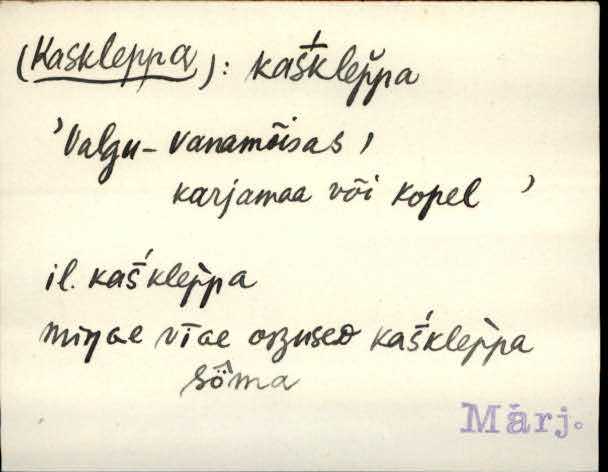 (Kaskleppa): kaškleppa
'Valgu-Vanamõisas,
karjamaa või kopel'
il. kaš́kleppa
miŋae vīae oʙused kaš́kleppa
sṏma
Märj.